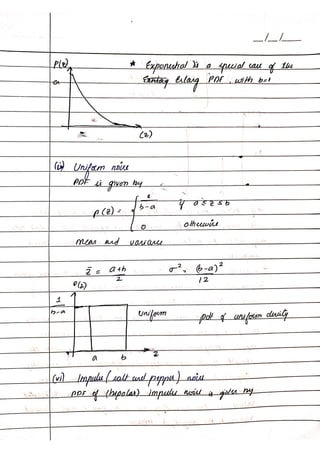 __/__/____
P(z)
★ Exponential is a special case of the
a
Erlang PDF, with b=1
(z)
(v) Uniform noise
PDF is given by
p(z) = { 1/b-a if a≤z≤b
0 otherwise
mean and variance
z̄ = a+b/2 σ², (b-a)²/12
P(z)
1/b-a
Uniform
pdf of uniform density
a b z
(vi) Impulse (salt and pepper) noise
PDF of (bipolar) impulse noise is given by